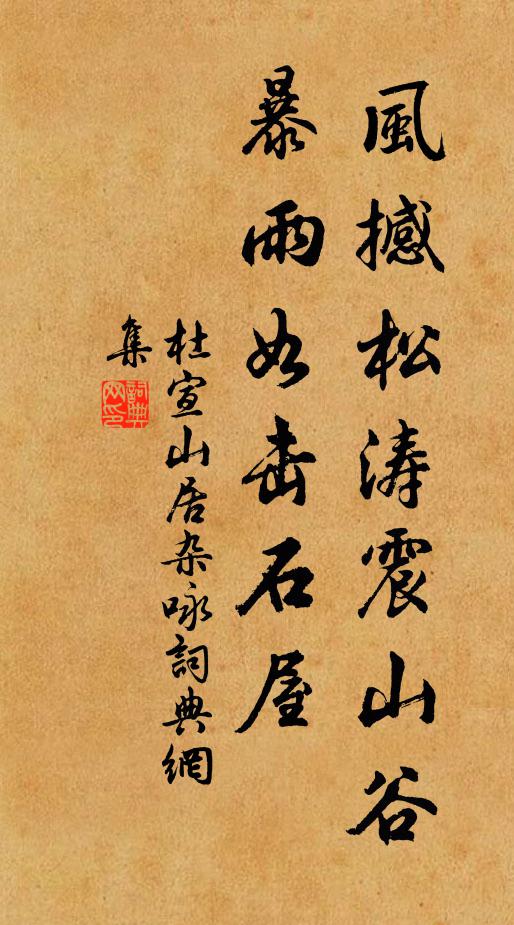 風撼松涛震山谷
暴雨如击石屋
杜宣山居杂咏詞典網
集
詞典网印